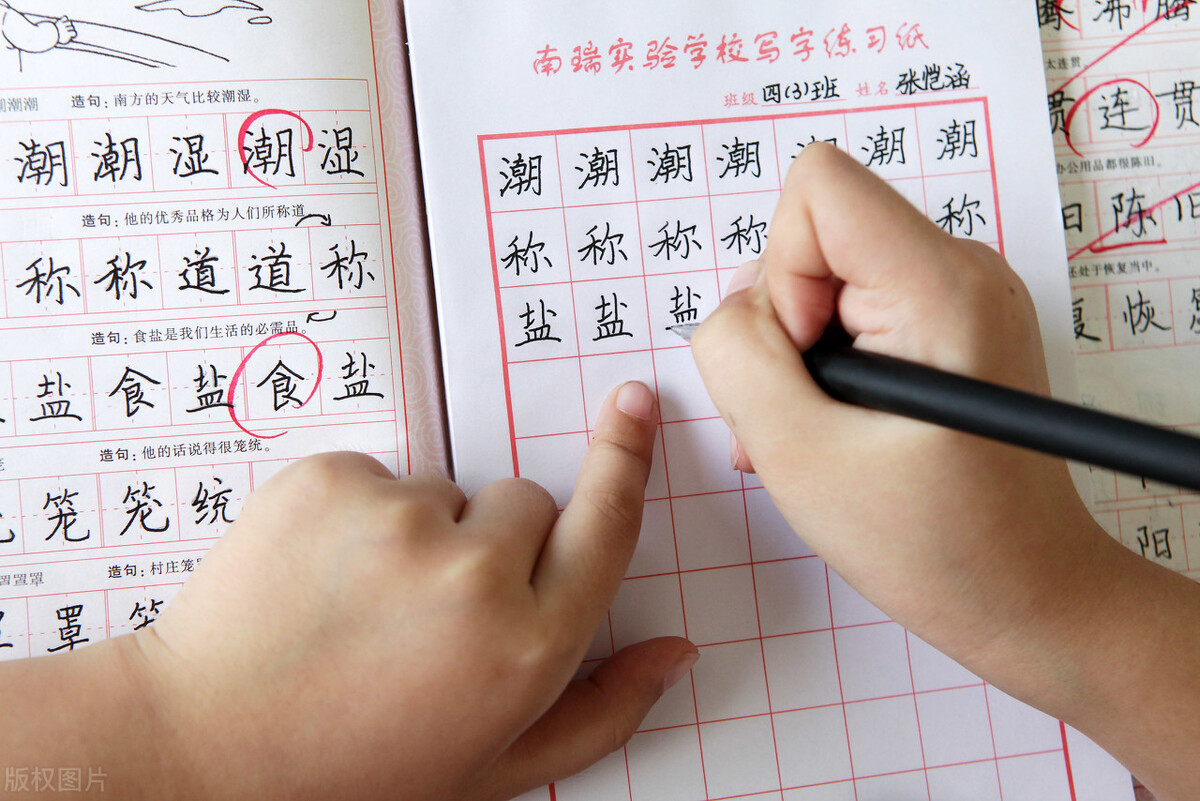 潮潮 造句：南方的天气比较潮湿。
潮潮湿潮湿
造句：他的优秀品格为人们所称道
称称道道称
造句：食盐是我们生活的必需品。
盐食盐食盐
造句：他的话说得很笼统。
笼笼统
罩罩 造句：村庄笼
罩笼
南瑞实验学校写字练习纸
班级 四(3)班 姓名 张恺涵
潮潮潮潮潮潮潮
称称称称称
盐盐盐
沸腾
太连贯
贯连贯
办公用品都很陈旧。
旧陈旧
还处于恢复当中。
复恢
阳
版权图片